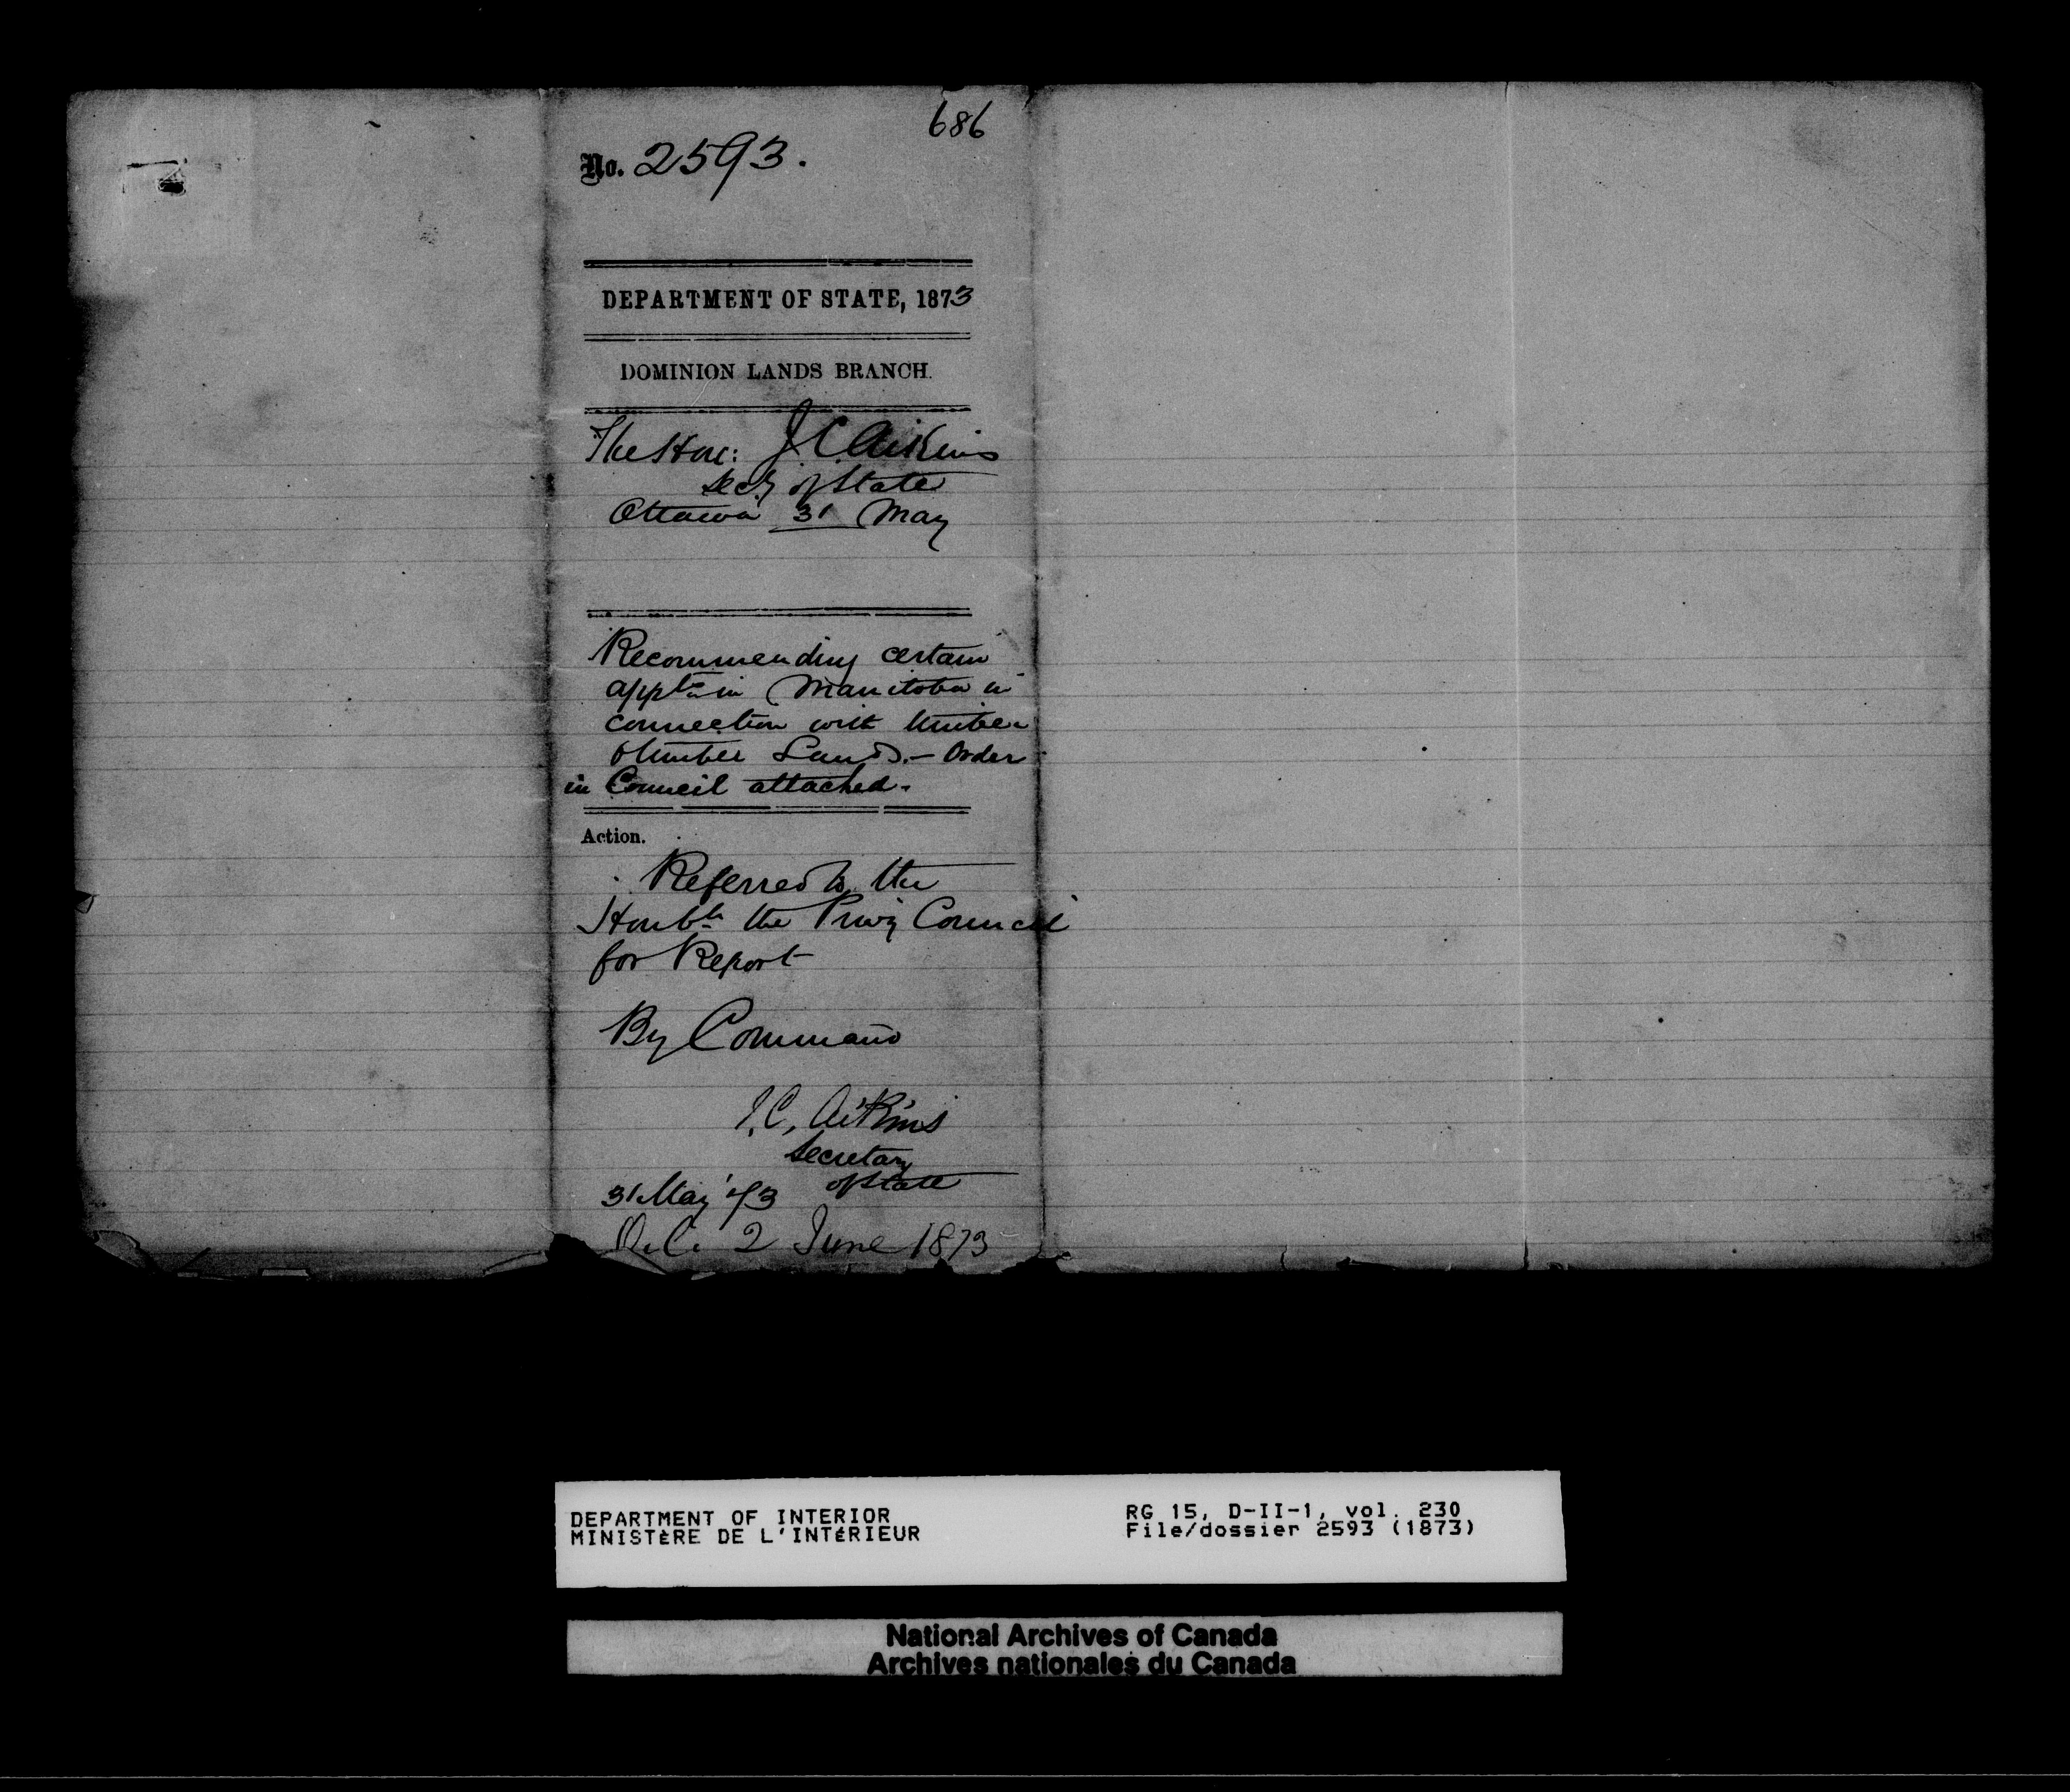 686
No. 2593.
DEPARTMENT OF STATE, 1873
DOMINION LANDS BRANCH.
The Hon: J. C. Aikins
Secy of State
Ottawa 31 May
Recommending certain
appts in Manitoba in
connection with timber
& timber Lands. - Order
in Council attached.
Action.
Referred to the
Honble the Privy Council
for Report
By Command
J. C. Aikins
Secretary
of State
31 May '73
O.C. 2 June 1873
DEPARTMENT OF INTERIOR
MINISTÈRE DE L'INTÉRIEUR
RG 15, D-II-1, vol. 230
File/dossier 2593 (1873)
National Archives of Canada
Archives nationales du Canada